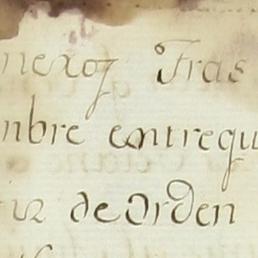 nexoz Fras
nbre entregu
de Orden